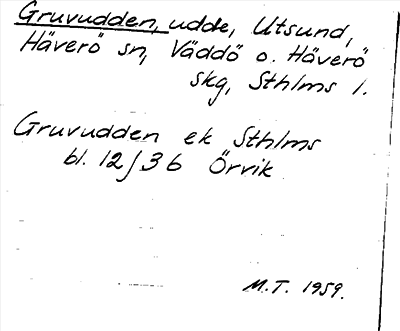 Gruvudden, udde, Utsund,
Häverö sn, Väddö o. Häverö
skg, Sthlms l.
Gruvudden ek Sthlms
bl. 12/3 b Örvik
M.T. 1959.